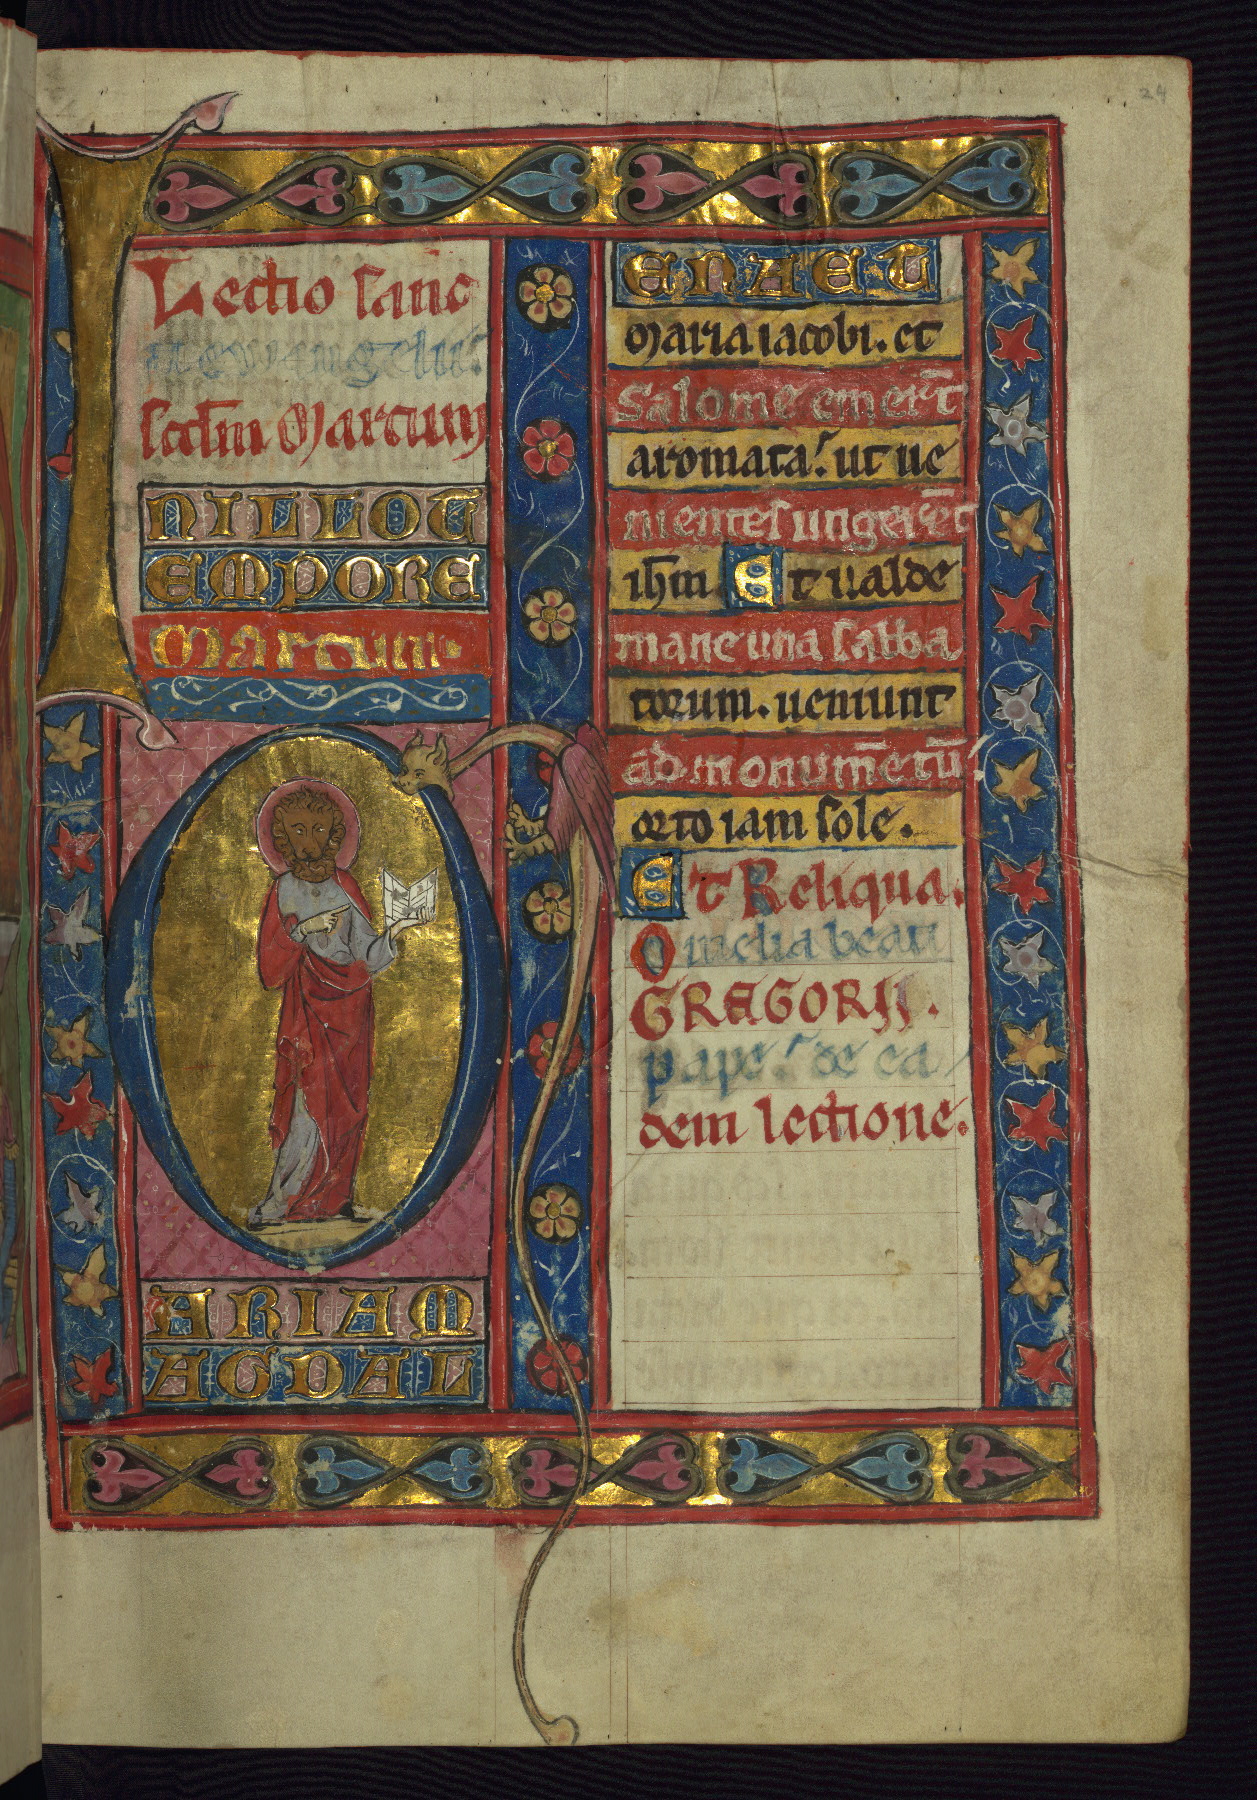 24
Lectio sanc
ti ewangelii.
scdm Marcum
INILLOT
EMPORE
Marcum
OARIAM
AGDAL
ENAET
Maria iacobi. et
Salome emert̄
aromata. ut ue
nientes ungerēt
ihm Et ualde
mane una sabba
torum. ueniunt
ad monumētū
orto iam sole.
Et Reliqua.
Omelia beati
GREGORII.
pape. de ea
dem lectione.